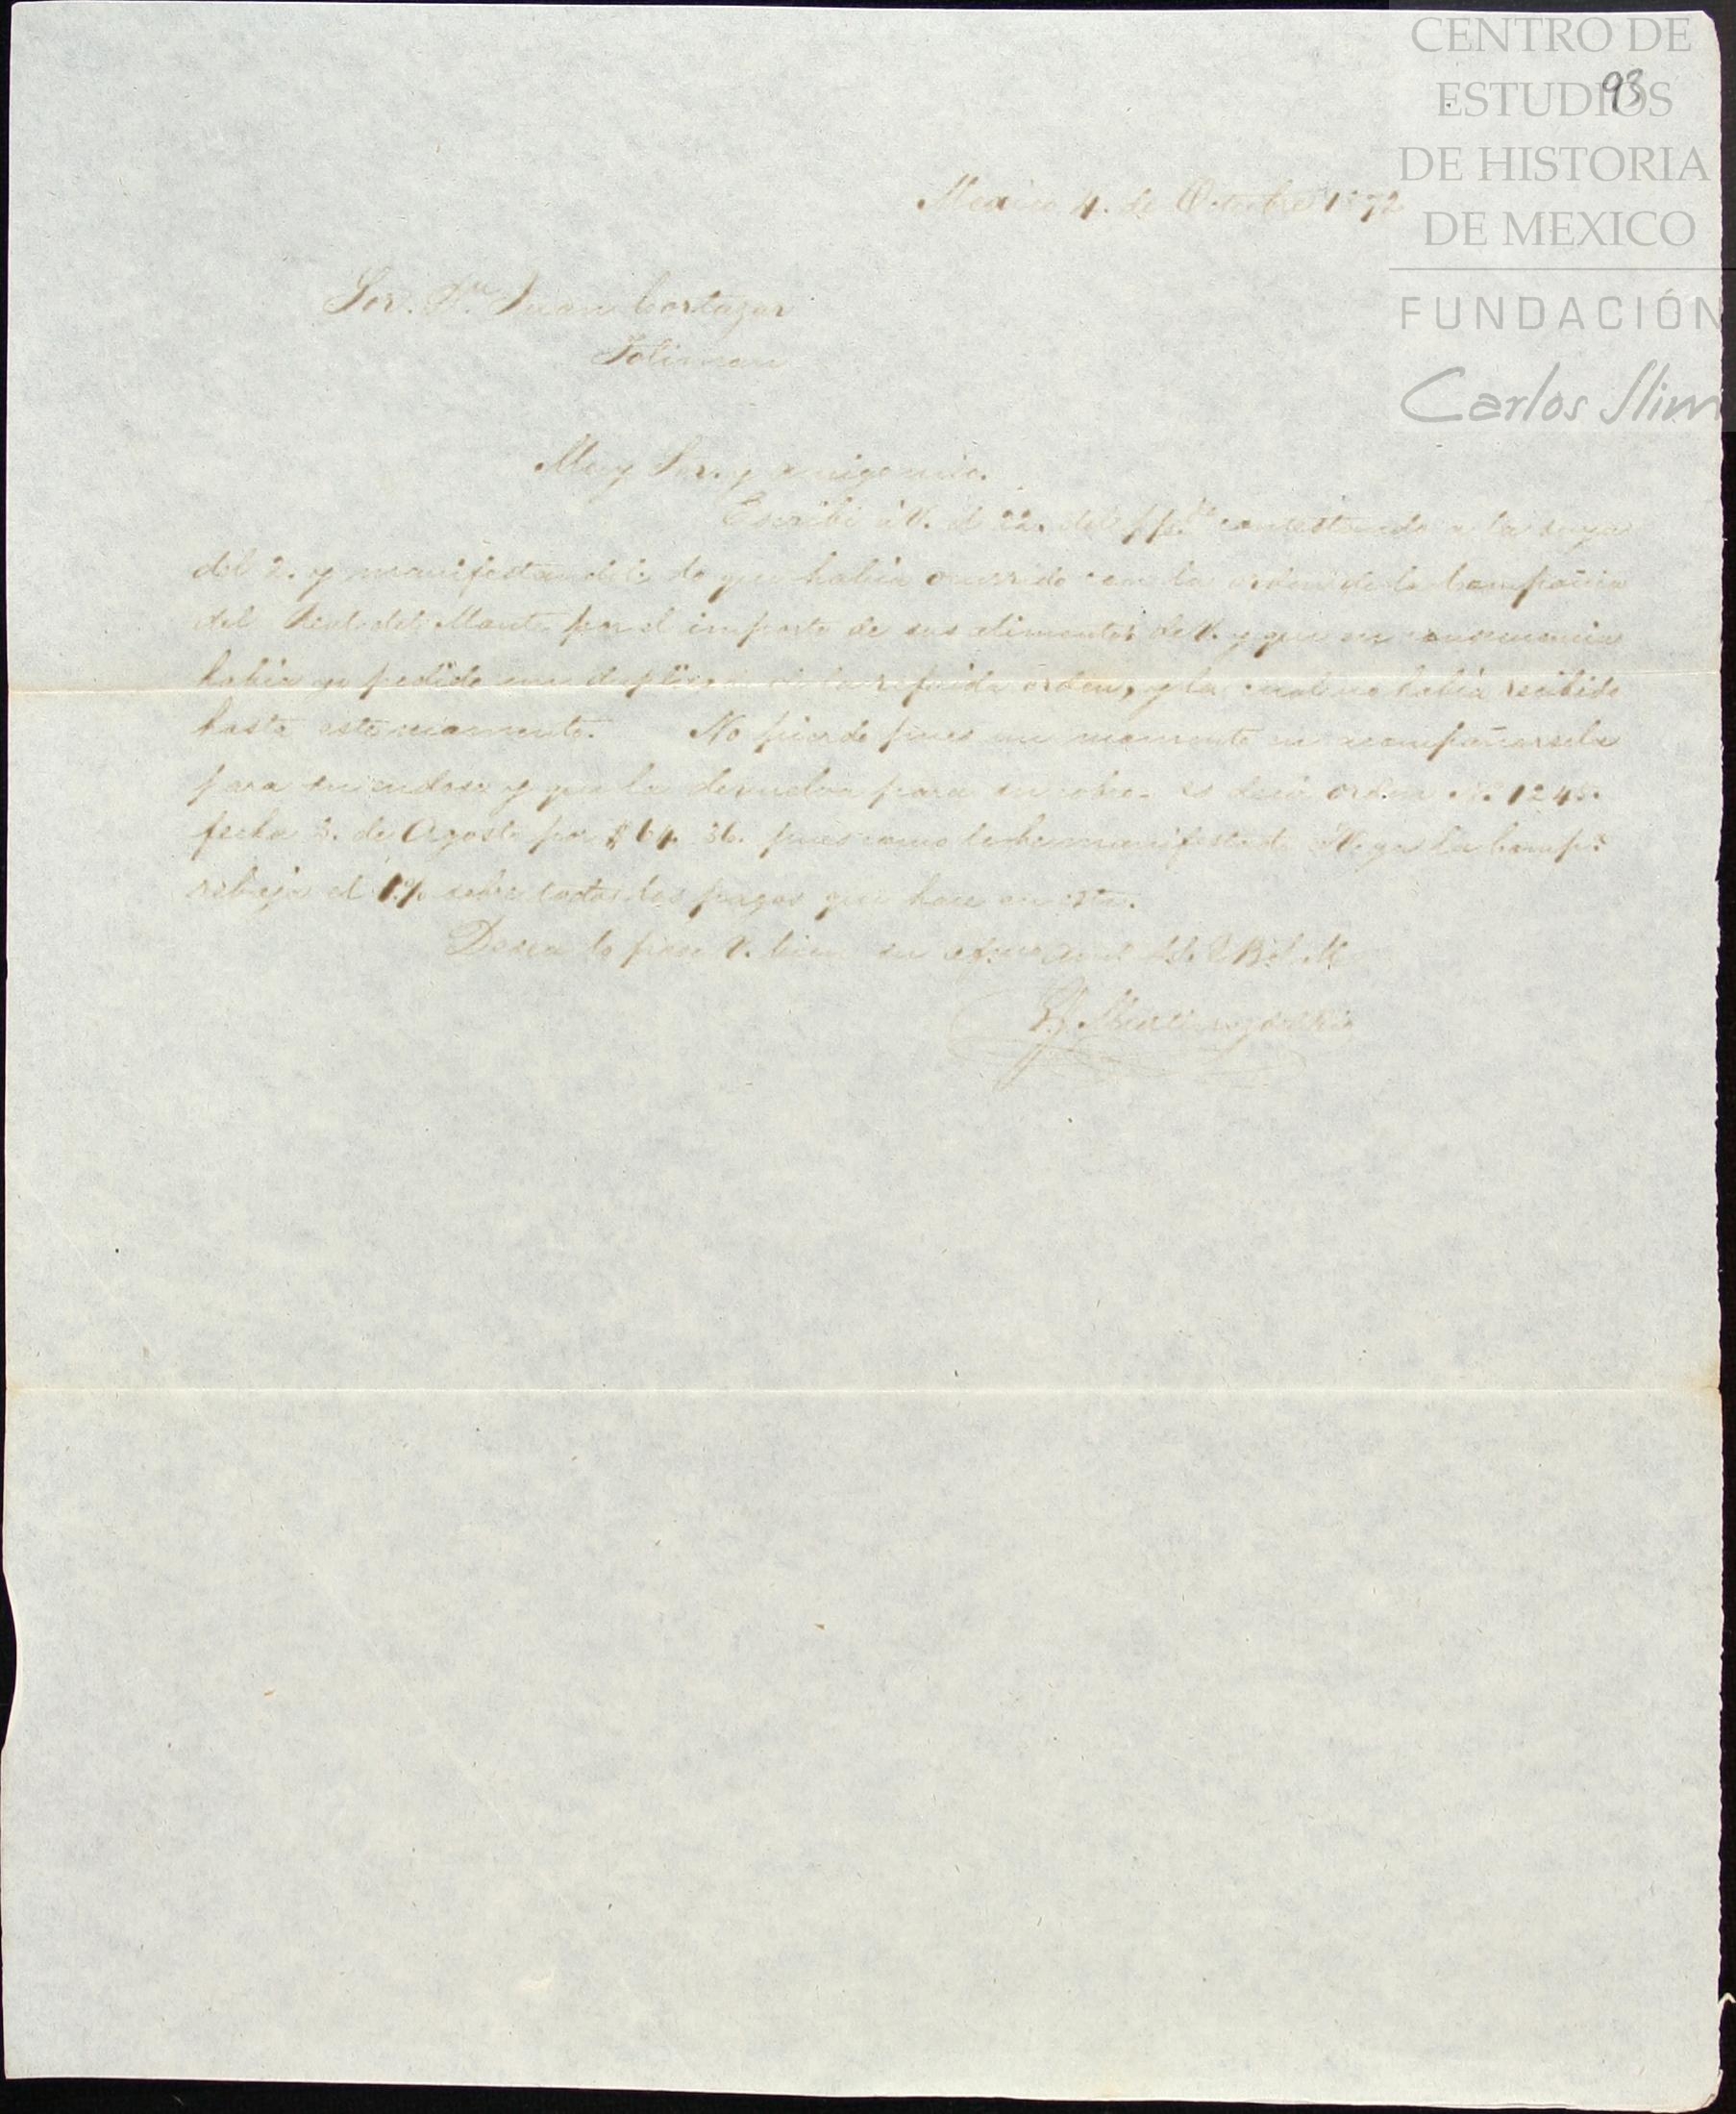 CENTRO DE
ESTUDIOS
DE HISTORIA
DE MEXICO
FUNDACIÓN
Carlos Slim
93
Mexico 4. de Octubre 1872
Sor. Dn. Juan Cortazar
Toliman
Muy Sor. y amigo mio.
Escribi á V. el 22. del pp.do contestando a la suya
del 2. y manifestandole lo que habia ocurrido con la orden de la Compañia
del Real del Monte por el importe de sus alimentos de V. y que en consecuencia
habia pedido un duplicado de la referida orden, y la cual no habia recibido
hasta este momento. No pierdo pues un momento en acompañarsela
para su endoso y que la devuelva para su cobro. es decir orden No. 1245.
fecha 3. de Agosto por $ 64. 36. pues como le he manifestado á V. ya la Comp.a
rebaja el 1% sobre todos los pagos que hace en esta.
Desea lo pase V. bien su afmo amo S.S. Q B. S. M.
Martinez del Rio